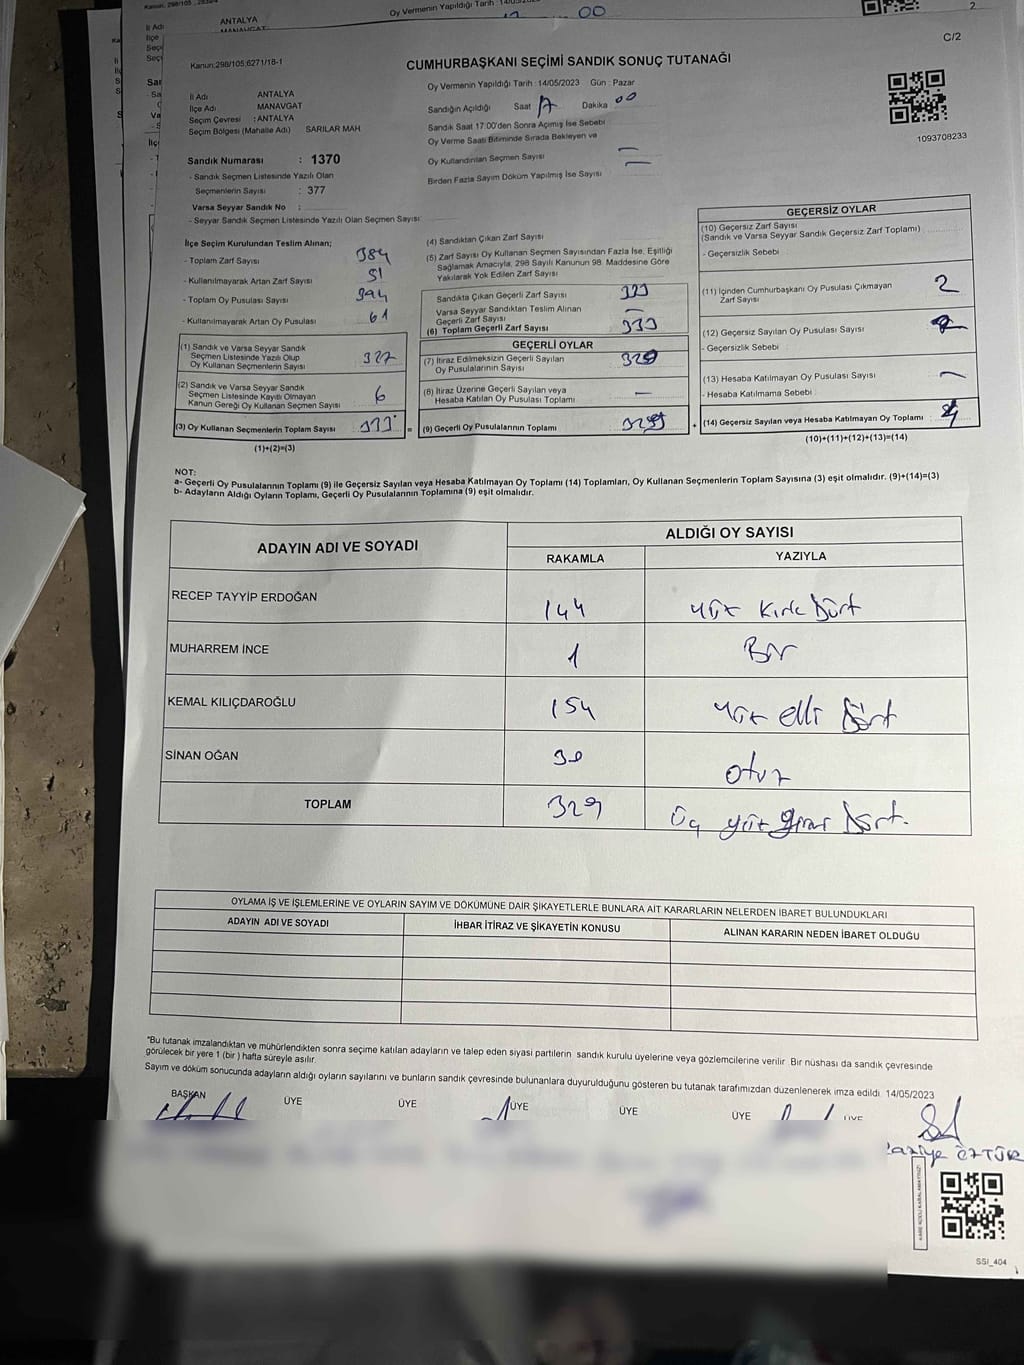 Oy Vermenin Yapıldığı Tarih
00
ANTALYA
C/2
Kanun:298/105,6271/18-1
CUMHURBAŞKANI SEÇİMİ SANDIK SONUÇ TUTANAĞI
Oy Vermenin Yapıldığı Tarih : 14/05/2023 Gün : Pazar
İl Adı ANTALYA
İlçe Adı MANAVGAT
Seçim Çevresi : ANTALYA
Seçim Bölgesi (Mahalle Adı) SARILAR MAH
Sandığın Açıldığı Saat 17 Dakika 00
Sandık Saat 17:00'den Sonra Açımış İse Sebebi
Oy Verme Saati Bitiminde Sırada Bekleyen ve
Oy Kullandırılan Seçmen Sayısı —
Birden Fazla Sayım Döküm Yapılmış İse Sayısı —
1093708233
Sandık Numarası : 1370
- Sandık Seçmen Listesinde Yazılı Olan
Seçmenlerin Sayısı : 377
Varsa Seyyar Sandık No :
- Seyyar Sandık Seçmen Listesinde Yazılı Olan Seçmen Sayısı
İlçe Seçim Kurulundan Teslim Alınan;
- Toplam Zarf Sayısı 384
- Kullanılmayarak Artan Zarf Sayısı 51
- Toplam Oy Pusulası Sayısı 394
- Kullanılmayarak Artan Oy Pusulası 61
(1) Sandık ve Varsa Seyyar Sandık
Seçmen Listesinde Yazılı Olup
Oy Kullanan Seçmenlerin Sayısı 327
(2) Sandık ve Varsa Seyyar Sandık
Seçmen Listesinde Kayıtlı Olmayan
Kanun Gereği Oy Kullanan Seçmen Sayısı 6
(3) Oy Kullanan Seçmenlerin Toplam Sayısı 333 =
(1)+(2)=(3)
(4) Sandıktan Çıkan Zarf Sayısı
(5) Zarf Sayısı Oy Kullanan Seçmen Sayısından Fazla İse, Eşitliği
Sağlamak Amacıyla, 298 Sayılı Kanunun 98. Maddesine Göre
Yakılarak Yok Edilen Zarf Sayısı
Sandıkta Çıkan Geçerli Zarf Sayısı 333
Varsa Seyyar Sandıktan Teslim Alınan
Geçerli Zarf Sayısı —
(6) Toplam Geçerli Zarf Sayısı 333
GEÇERLİ OYLAR
(7) İtiraz Edilmeksizin Geçerli Sayılan
Oy Pusulalarının Sayısı 329
(8) İtiraz Üzerine Geçerli Sayılan veya
Hesaba Katılan Oy Pusulası Toplamı —
(9) Geçerli Oy Pusulalarının Toplamı 329 +
GEÇERSİZ OYLAR
(10) Geçersiz Zarf Sayısı
(Sandık ve Varsa Seyyar Sandık Geçersiz Zarf Toplamı)
- Geçersizlik Sebebi
(11) İçinden Cumhurbaşkanı Oy Pusulası Çıkmayan
Zarf Sayısı 2
(12) Geçersiz Sayılan Oy Pusulası Sayısı 2
- Geçersizlik Sebebi
(13) Hesaba Katılmayan Oy Pusulası Sayısı —
- Hesaba Katılmama Sebebi
(14) Geçersiz Sayılan veya Hesaba Katılmayan Oy Toplamı 4
(10)+(11)+(12)+(13)=(14)
NOT:
a- Geçerli Oy Pusulalarının Toplamı (9) ile Geçersiz Sayılan veya Hesaba Katılmayan Oy Toplamı (14) Toplamları, Oy Kullanan Seçmenlerin Toplam Sayısına (3) eşit olmalıdır. (9)+(14)=(3)
b- Adayların Aldığı Oyların Toplamı, Geçerli Oy Pusulalarının Toplamına (9) eşit olmalıdır.
ADAYIN ADI VE SOYADI ALDIĞI OY SAYISI
RAKAMLA YAZIYLA
RECEP TAYYİP ERDOĞAN 144 yüz kırk dört
MUHARREM İNCE 1 Bir
KEMAL KILIÇDAROĞLU 154 yüz elli dört
SİNAN OĞAN 30 otuz
TOPLAM 329 üç yüz yirmi
OYLAMA İŞ VE İŞLEMLERİNE VE OYLARIN SAYIM VE DÖKÜMÜNE DAİR ŞİKAYETLERLE BUNLARA AİT KARARLARIN NELERDEN İBARET BULUNDUKLARI
ADAYIN ADI VE SOYADI İHBAR İTİRAZ VE ŞİKAYETİN KONUSU ALINAN KARARIN NEDEN İBARET OLDUĞU
*Bu tutanak imzalandıktan ve mühürlendikten sonra seçime katılan adayların ve talep eden siyasi partilerin sandık kurulu üyelerine veya gözlemcilerine verilir Bir nüshası da sandık çevresinde
görülecek bir yere 1 (bir) hafta süreyle asılır.
Sayım ve döküm sonucunda adayların aldığı oyların sayılarını ve bunların sandık çevresinde bulunanlara duyurulduğunu gösteren bu tutanak tarafımızdan düzenlenerek imza edildi 14/05/2023
BAŞKAN ÜYE ÜYE ÜYE ÜYE ÜYE ÜYE
SSI_404